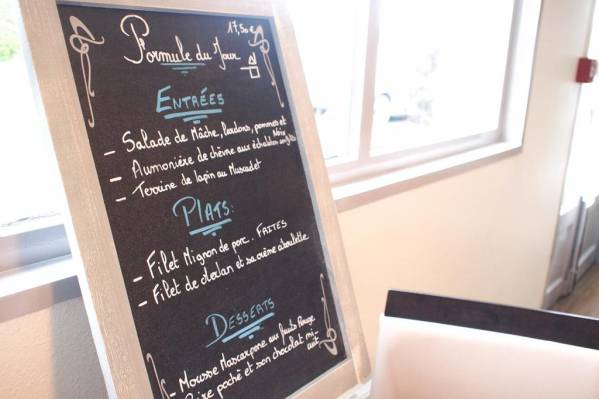 17,50€
Formule du Jour
ENTRÉES
- Salade de Mâche, lardons, pommes et
- Aumonière de chèvre aux échalotes
- Terrine de lapin au Muscadet
PLATS:
- Filet Mignon de porc. FAITES
- Filet de Merlan et sa crème ciboulette
DESSERTS
- Mousse Mascarpone aux fruits Rouge
- Poire poché et son chocolat mi-
cuit